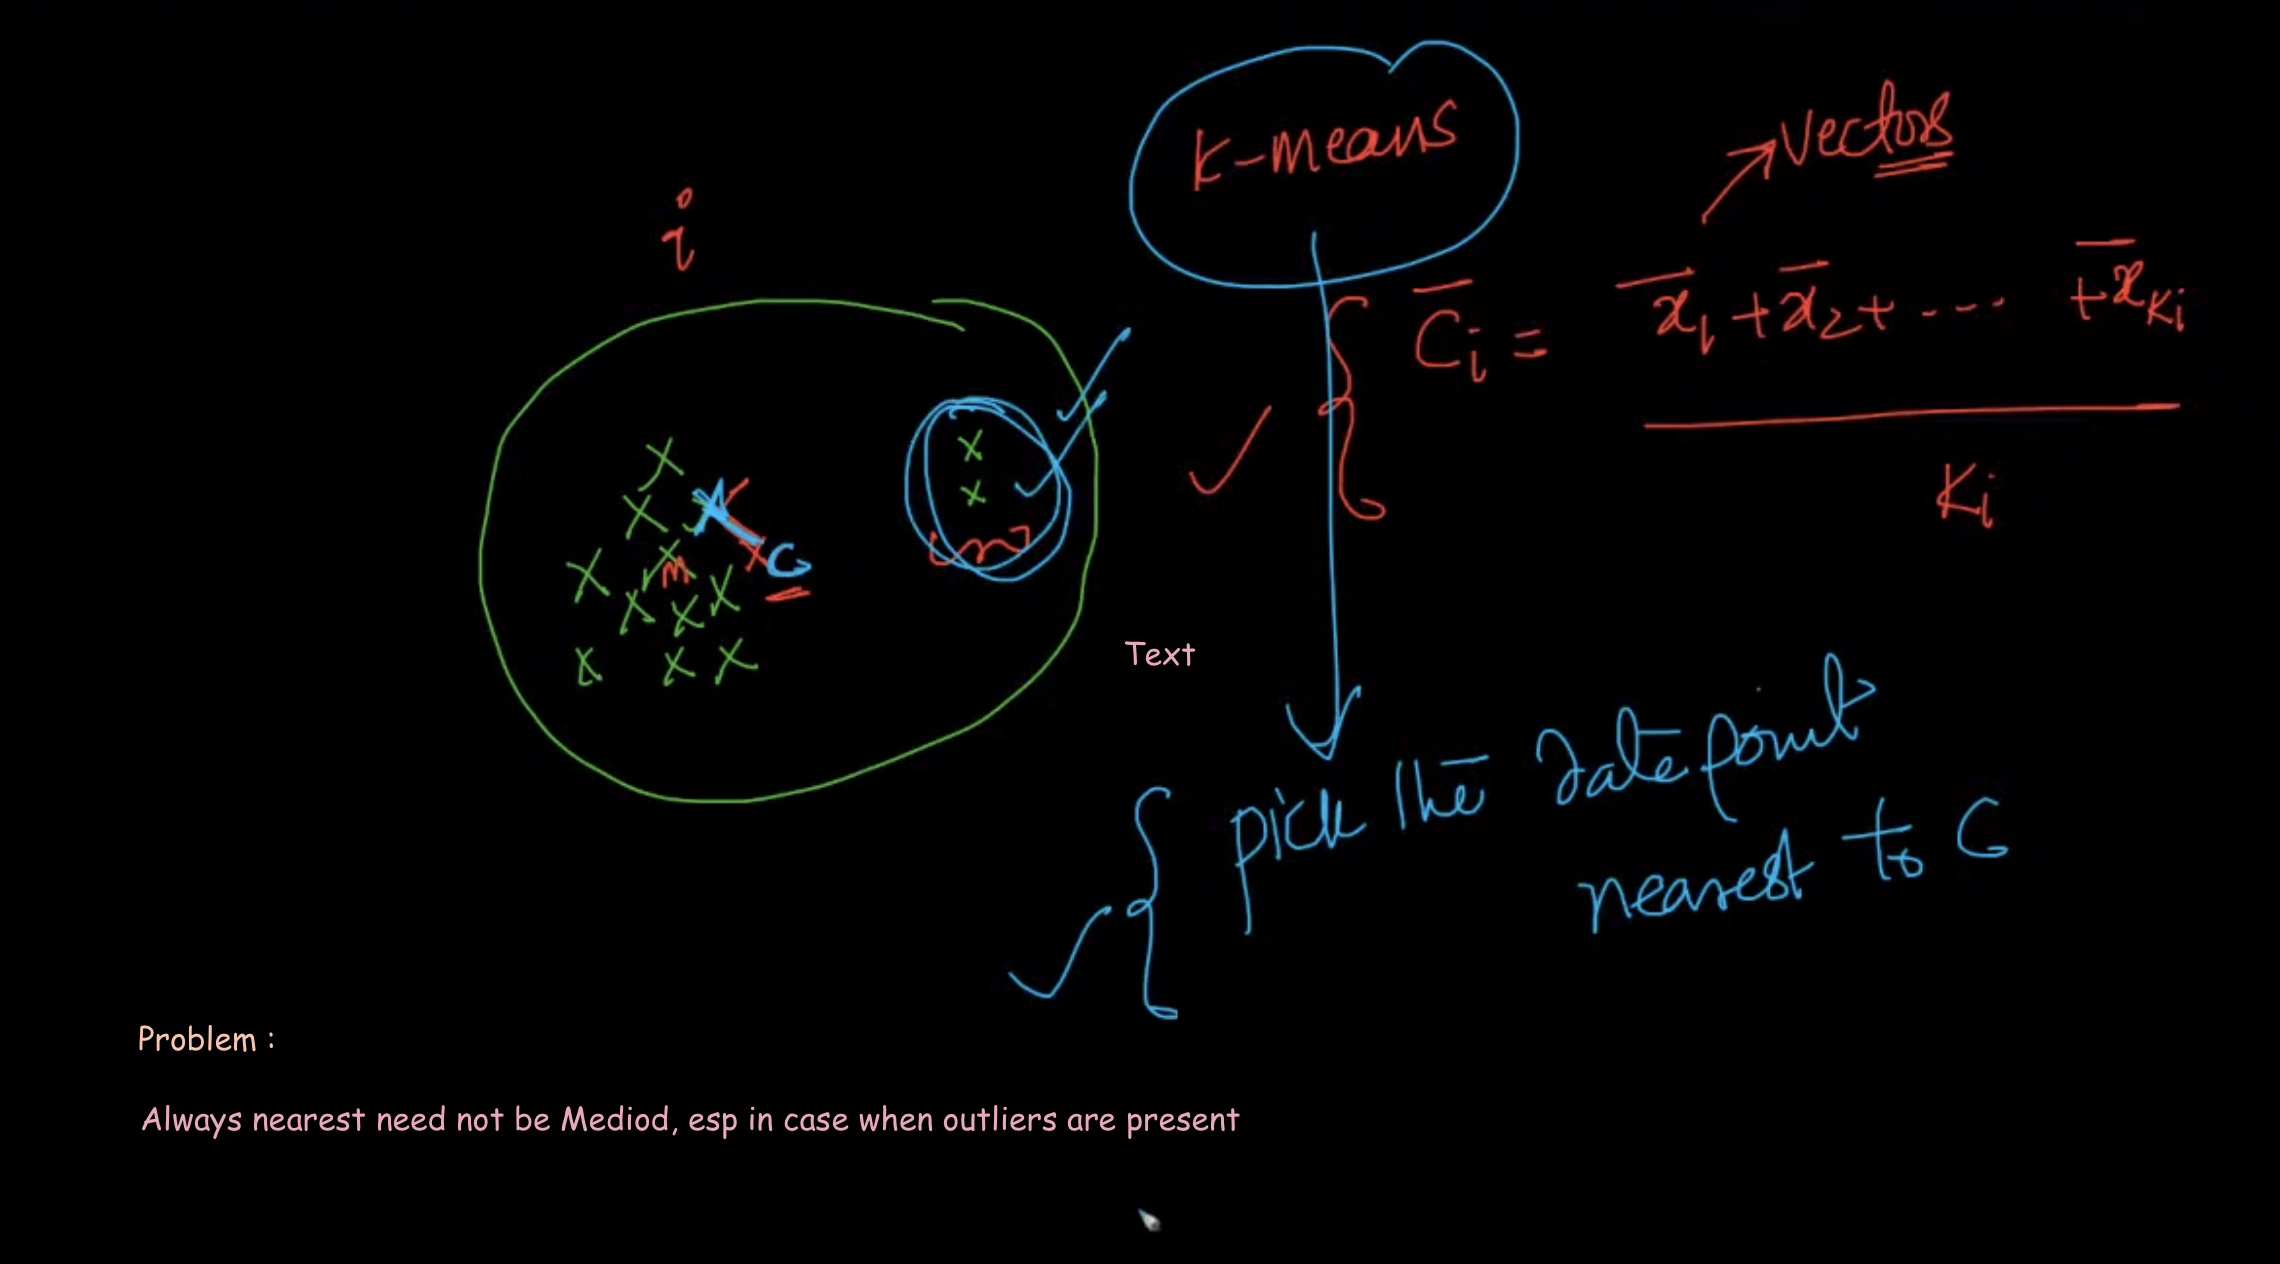 K-means
vectors
i
C̅i = x̅1 + x̅2 + - - - + x̅Ki
Ki
M
C
Text
pick the datapoint
nearest to C
Problem :
Always nearest need not be Mediod, esp in case when outliers are present